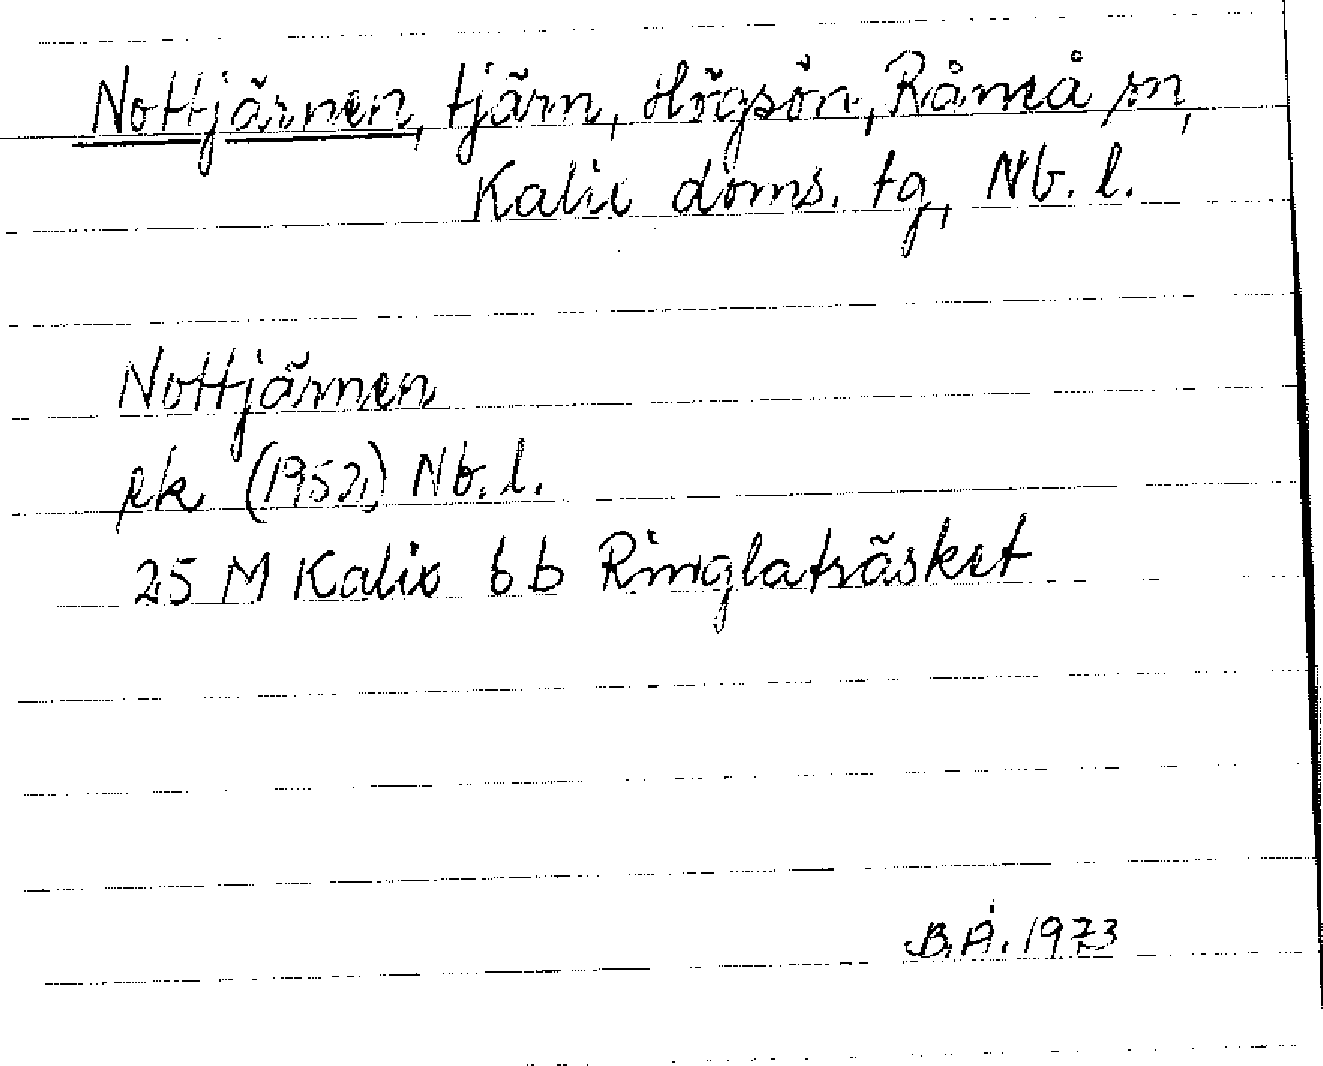 Nottjärnen, tjärn, Högsön, Råneå sn,
Kalix doms. tg, Nb. l.
Nottjärnen
rk (1952) Nb. l.
25 M Kalix 6b Ringlaträsket
B.Å. 1973